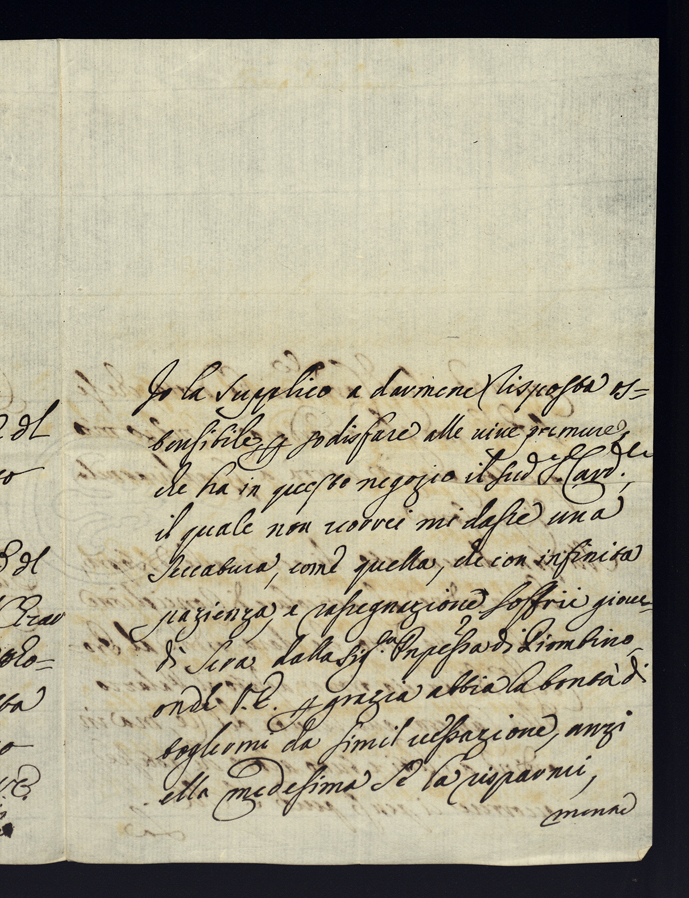 dl
Io la supplico a darmene risposta os=
tensibile, p sodisfare alle vive premure,
che ha in questo negozio il sud.º S.r Card.le,
il quale non vorrei mi dasse una
seccatura, come quella, che con infinita
pazienza, e rassegnazione soffrii giove-
di sera dalla Sig.ra Pnpessa di Piombino,
onde V.E. p grazia abbia la bontà di
togliermi da simil vessazione, anzi
ella medesima se la risparmi,
mentre